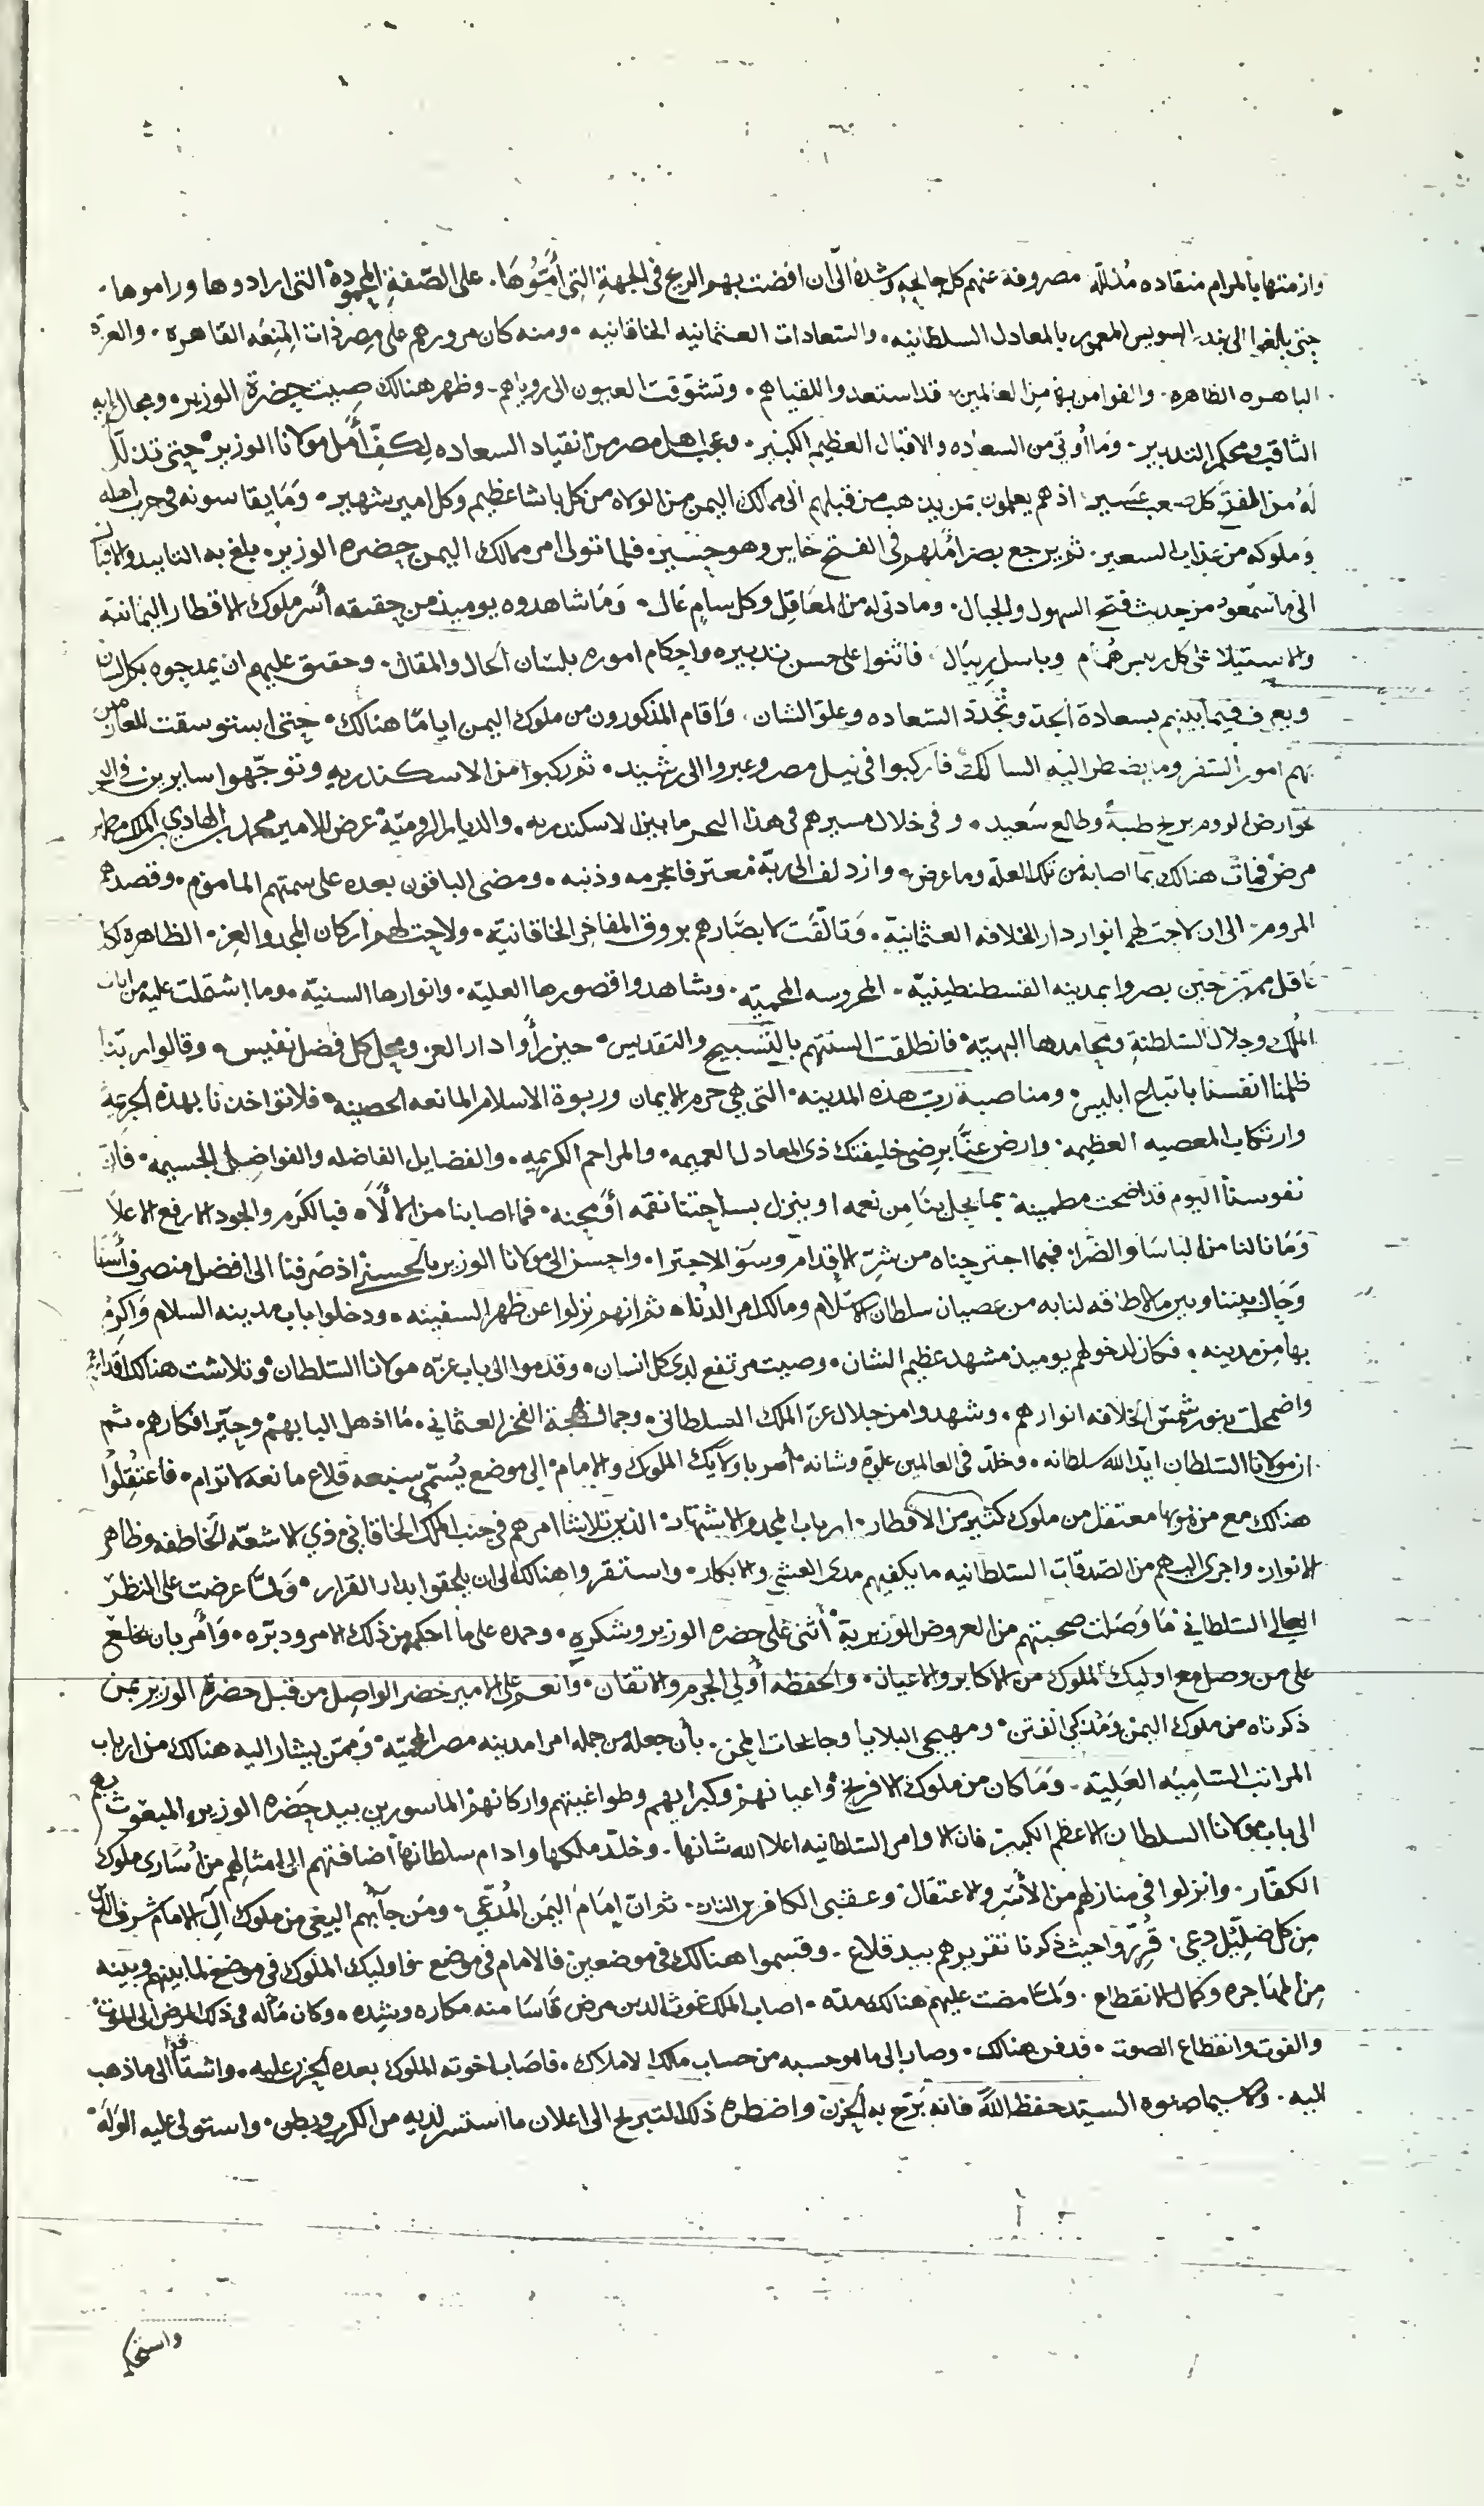 وازمتها بالمرام منقاده مُذللّه مصروفة عنهم كل جايحةٍ وشدّة الى أن افضت بهم الريح فى الجهةِ التى أَمّوُهَا. على الصّفةِ المحموُدة التى ارادوها وراموها.
حتى بلغوا الى بندر السويس المعمور بالمعادل السلطانيه. والسّعادات العثمانيه الخاقانيه. ومنه كان مرورهم على مصر ذات المنعه القاهره. والعزة
الباهره الظاهره. والفوا من بها مِن العالمين. قد استعدوا للقياهم. وتشوّقت العيون الى روياهم. وظهر هنالك صيت حضرة الوزير. ومجال رايه
الثاقب ومحكم التدبير. وما أُوتى من السعاده والاقبال العظيم الكبير. وعجب اهل مصر من انقياد السعاده لِكفّ أمل مولانا الوزير. حتى تذلّل
لَهُ من المفتر كل صعب عَسير. اذ هم يعلمون بمن يذهب من قبلهم الى ممالك اليمن من الولاه من كل باشا عظيم وكل امير شهير. وَمَا يقاسونه فى حرب اهله
وَملوكه من عذاب السعير. ثم يرجع بصر أملهم فى الفتح خاير وهو حسير. فلما تولى امر ممالك اليمن حضره الوزير. بلغ به التاييد والاقبال
الى ما سَمعوُه من حديث فتح السهول والجبال. وما دنى له من المعَاقِل وكل سامٍ عَال. وَمَا شاهدوه يوميذ من حقيقه أَسر ملوك الاقطار اليمانيه
والاستيلا على كل رييس هُمَام وباسل رِيبَال. فاثنوا على حسن تدبيره واحكام اموره بلسَان الحال والمقال. وحقيق عليهم ان يمدحوه بكل لسان
ويعرف فيما بينهم بسعادة الجدّ وتجدّد السّعاده وعلوّ الشان. وَاقام المذكورون من ملوك اليمن ايامًا هنالك. حتى استوسقت للعازمين
بهم امور السّفر وما يضطر اليهِ السالك. فاركبوا فى نيل مصر وعبروا الى رشيد. ثم ركبوا من الاسكندريه وتوجّهوا سايرين فى البحر
نحو ارض الروم بريح طيبةً وطالع سَعيد. وفى خلال مسيرهم فى هذا البحر ما بين الاسكندريه. والديار الروميّة عرض للامير محمد بن الهادى بن الملك مطهر
مرضٌ فماتَ هنالك بما اصابه من تلك العلّة وما عرض. وازدلف الى ربّه معترفا بجرمه وذنبه. ومضى الباقون بعده على سمتهم المامؤم. وقصدهم
المروم. الى ان لاحت لهم انوار دار الخلافه العثمانيّة. وَتألّقت لابصَارهم بروق المفاخر الخاقانيّة. ولاحت لهم اركان المجد والعز. الظاهرة لكل
ناقل مميّز حين بصروا بمدينه القسطنطينيّة. المحروسه المحميّه. وشاهدوا قصورها العليّه. وانوارها السنيّه. وما اشتملت عليه من ايات
المُلك وجلال السّلطنةِ ومحامدها البهيّه. فانطلقت السنتهم بالتّسبيح والتقديس. حين رأَوا دار العز. ومحل كل فضل نفيس. وقالوا ربّنا
ظلمنا انفسنا باتباع ابليس. ومناصبة ربّ هذه المدينه. التى هى حرم الايمان وربوة الاسلام المانعه الحصينه. فلا تؤاخذنا بهذه الجريمة
وارتكاب المعصيه العظيمه. وارض عنّا برضى خليفتك ذى المعادل العميمه. والمراحم الكريمه. والفضايل الفاضله والفواضل الجسيمه. فان
نفوسنا اليوم قد اضحت مطمينة. بما يحل بنَا مِن نعمه او ينزل بساحتنا نقمه أَو محنه. فما اصابنا من الالآء. فبالكَرَم والجود الارفع الاعلاَ
وَمَا نالنا من الباسَاء والضّراء. فبما اجترحناه من شرّ الاقدام وسَوءِ الاجترا. واحسن الى مولانا الوزير بالحسنى اذ صَرفنا الى افضل منصرف أَسنا
وَحَال بيننا وبين ما لا طاقه لنا به من عصيان سلطان الاسلام ومالك امر الدُنيا. ثم انهم نزلوا عن ظهر السفينه. ودخلوا باب مدينه السلام وَاكرِم
بها مِن مدينه. فكان لدخولهم يوميذ مشهد عظيم الشان. وصيت مرتفع لدى كل انسان. وقدموا الى باب عزّه مولانا السّلطان. وتلاشت هنالك اقدارهم
واضمحلت بنور شمس الخلافه انوارهم. وشهدوا من جلال عزّ الملك السلطانى. وجمال بهجة الفخر العثمانى. مَا اذهل البابهم وحيّر افكارهم. ثم
ان مولانا السّلطان ايّد الله سلطانه. وخلّد فى العالمين علوّه وشانه. أمر باولايك الملوك والامام. الى موضع يُسمّى سبعه قلاع مانعه لا ترام. فاعتُقِلُوا
هنالك مع من بها معتقل من ملوك كثير من الاقطار. ارباب المجد والاشتهار. الذين تلاشا امرهم فى جنب الملك الخاقانى ذى الاشعّه الخاطفه وظاهر
الانوار. واجرى اليهم من الصّدقات السّلطانيه ما يكفيهم مدى العشى والابكار. واستقروا هنالك الى ان يلحقوا بدار القرار. وَلمّا عرضت على النظر
العالى السّلطانى مَا وَصَلت صحبتهم من العروض الوزيرية. أثنى عَلى حضره الوزير وشكره. وحمده على ما احكم من ذلك الامر ودبّره. وَأَمر بان يخلع
على من وصل مع اوليك الملوك من الاكابر والاعيان. والحفظه أُولى الجزم والاتقان. وانعم على الامير خضر الواصل من قبل حضرة الوزير بمن
ذكرناه من ملوك اليمن وَمُذكى الفتن. ومهيجى البلايا وجايحات المحن. بأن جعله من جمله امرا مدينه مصر المحميّه. وَممّن يشار اليه هنالك من ارباب
المراتب السّاميه العَليّه. وَمَا كان من ملوك الافرنج واعيانهم وكبرايهم وطواغيتهم واركانهم الماسورين بيد حَضره الوزير المبعوث بهم
الى باب مولانا السلطان الاعظم الكبير. فان الاوامر السّلطانيه اعلا الله شانها. وخلّد ملكها وادام سلطانها اضافتهم الى امثالهم من أُسَارى ملوك
الكفّار. وانزلوا فى منازلهم من الأَسرِ والاعتقال. وعقبى الكافرين النار. ثم انّ اِمَامَ اليَمن المُدّعى. ومَن جأبهم البغى من ملوك آل الامام شرف الدين
مِن كل ضلِّيل دعى. قُرِّرُوا حيث ذكرنا تقريرهم بيد قلاع. وقسموا هنالك فى موضعين فالامام فى موضع واوليك الملوك فى موضع لما بينهم وبينه
مِن المهَاجره وكمال الانقطاع. وَلمّا مضت عليهم هنالك مدّه. اصاب الملك غوث الدين مرض قاسَا منه مكاره وشده. وكان مَآله فى ذلك المرض الى الموت
والفوت وانقطاع الصوت. فدفن هنالك. وصار الى ما هو حسبه من حساب مالك الاملاك. فاصَاب اخوته الملوك بعده الحزن عليه. واشتاقوا الى ما ذهب
اليه. ولاسيما صنوه السيّد حفظ اللهَ فانه بَرّح به الحزن واضطره ذلك التبريح الى اعلان ما استسر لديه من الكرب وبطن. واستولى عليه الوَلَهُ
واستحكم